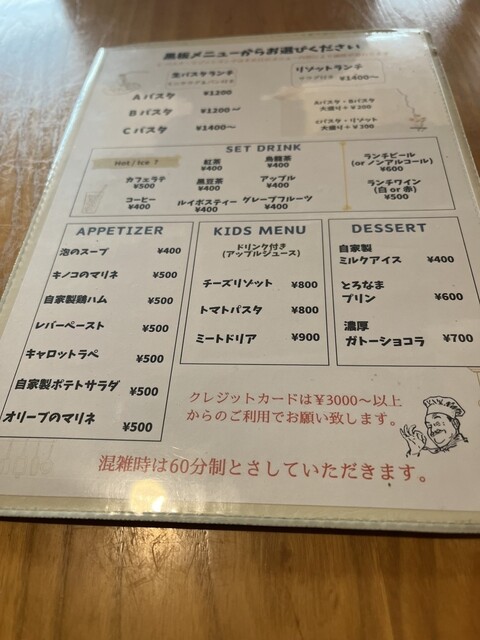 黒板メニューからお選びください
生パスタランチ
Aパスタ ¥1200
Bパスタ ¥1200〜
Cパスタ ¥1400〜
リゾットランチ
¥1400〜
Aパスタ・Bパスタ
大盛り+¥200
Cパスタ・リゾット
大盛り+¥300
SET DRINK
Hot/Ice?
紅茶
¥400
烏龍茶
¥400
カフェラテ
¥500
黒豆茶
¥400
アップル
¥400
コーヒー
¥400
ルイボスティー
¥400
グレープフルーツ
¥400
ランチビール
(or ノンアルコール)
¥600
ランチワイン
(白 or 赤)
¥500
APPETIZER
泡のスープ ¥400
キノコのマリネ ¥500
自家製鶏ハム ¥500
レバーペースト ¥500
キャロットラペ ¥500
自家製ポテトサラダ ¥500
オリーブのマリネ ¥500
KIDS MENU
ドリンク付き
(アップルジュース)
チーズリゾット ¥800
トマトパスタ ¥800
ミートドリア ¥900
DESSERT
自家製
ミルクアイス ¥400
とろなま
プリン ¥600
濃厚
ガトーショコラ ¥700
クレジットカードは¥3000〜以上
からのご利用でお願い致します。
混雑時は60分制とさしていただきます。